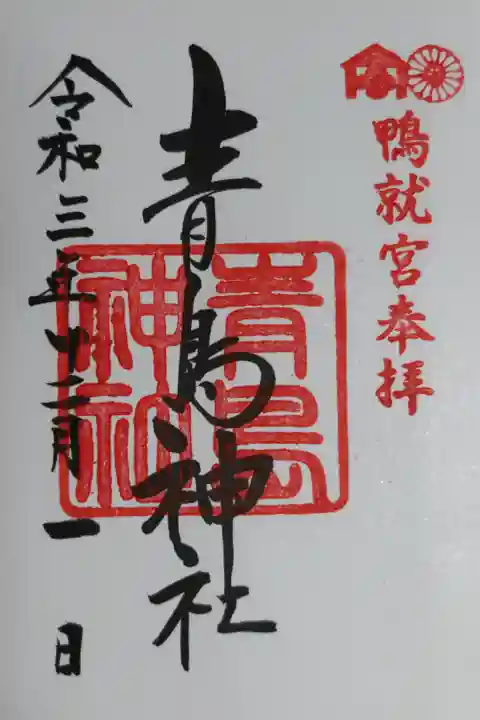 鴨就宮奉拝
青島神社
青島
神社
令和三年十二月一日